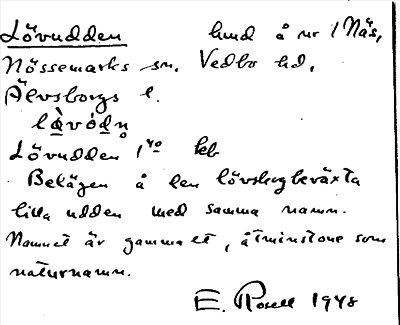 Lövudden hmd å nr 1 Näs,
Nössemarks sn. Vedbo hd,
Älvsborgs l.
Lövudden 1⁴⁰ keb
Belägen å den lövskogbeväxta
lilla udden med samma namn.
Namnet är gammalt, åtminstone som
naturnamn.
E. Rosell 1948